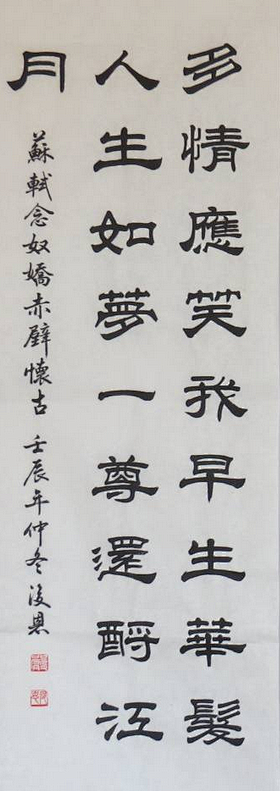 多情應笑我早生華髮
人生如夢一尊還酹江
月
蘇軾念奴嬌赤壁懷古 壬辰年仲冬